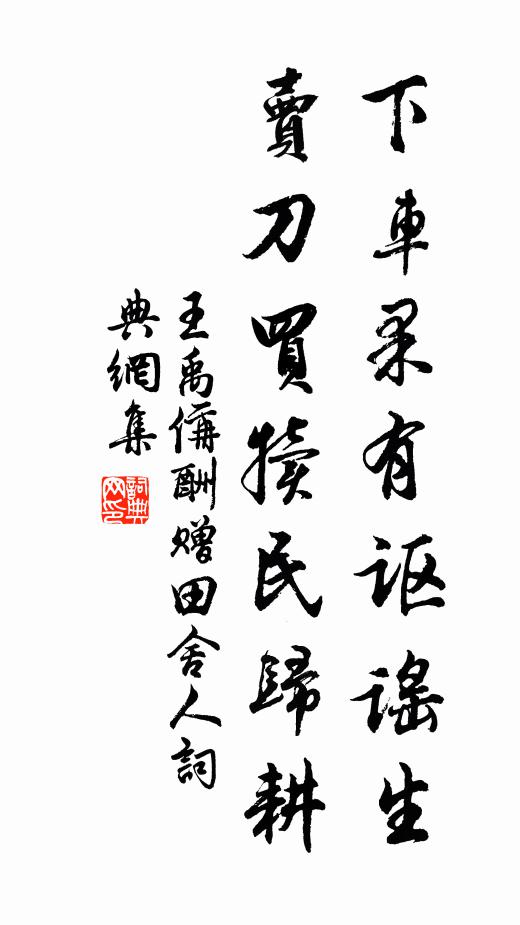 下車果有讴謡生
賣刀買犢民歸耕
王禹偁酬贈田舍人詞
典網集
詞典网印